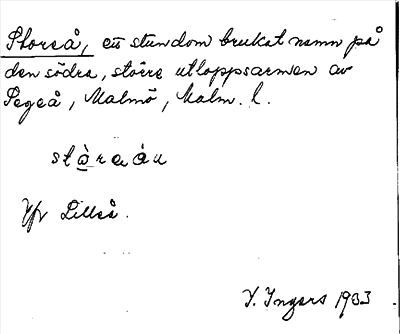 Storeå, ett stundom brukat namn på
den södra, större utloppsarmen av
Segeå, Malmö, Malm. l.
stòreáu
Jfr Lilleå.
I. Ingers 1933